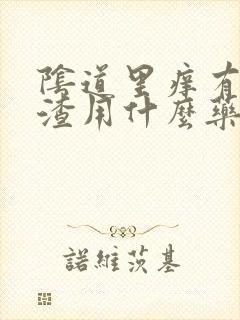 陰道里痒有
渣用什麼藥
諾維茨基